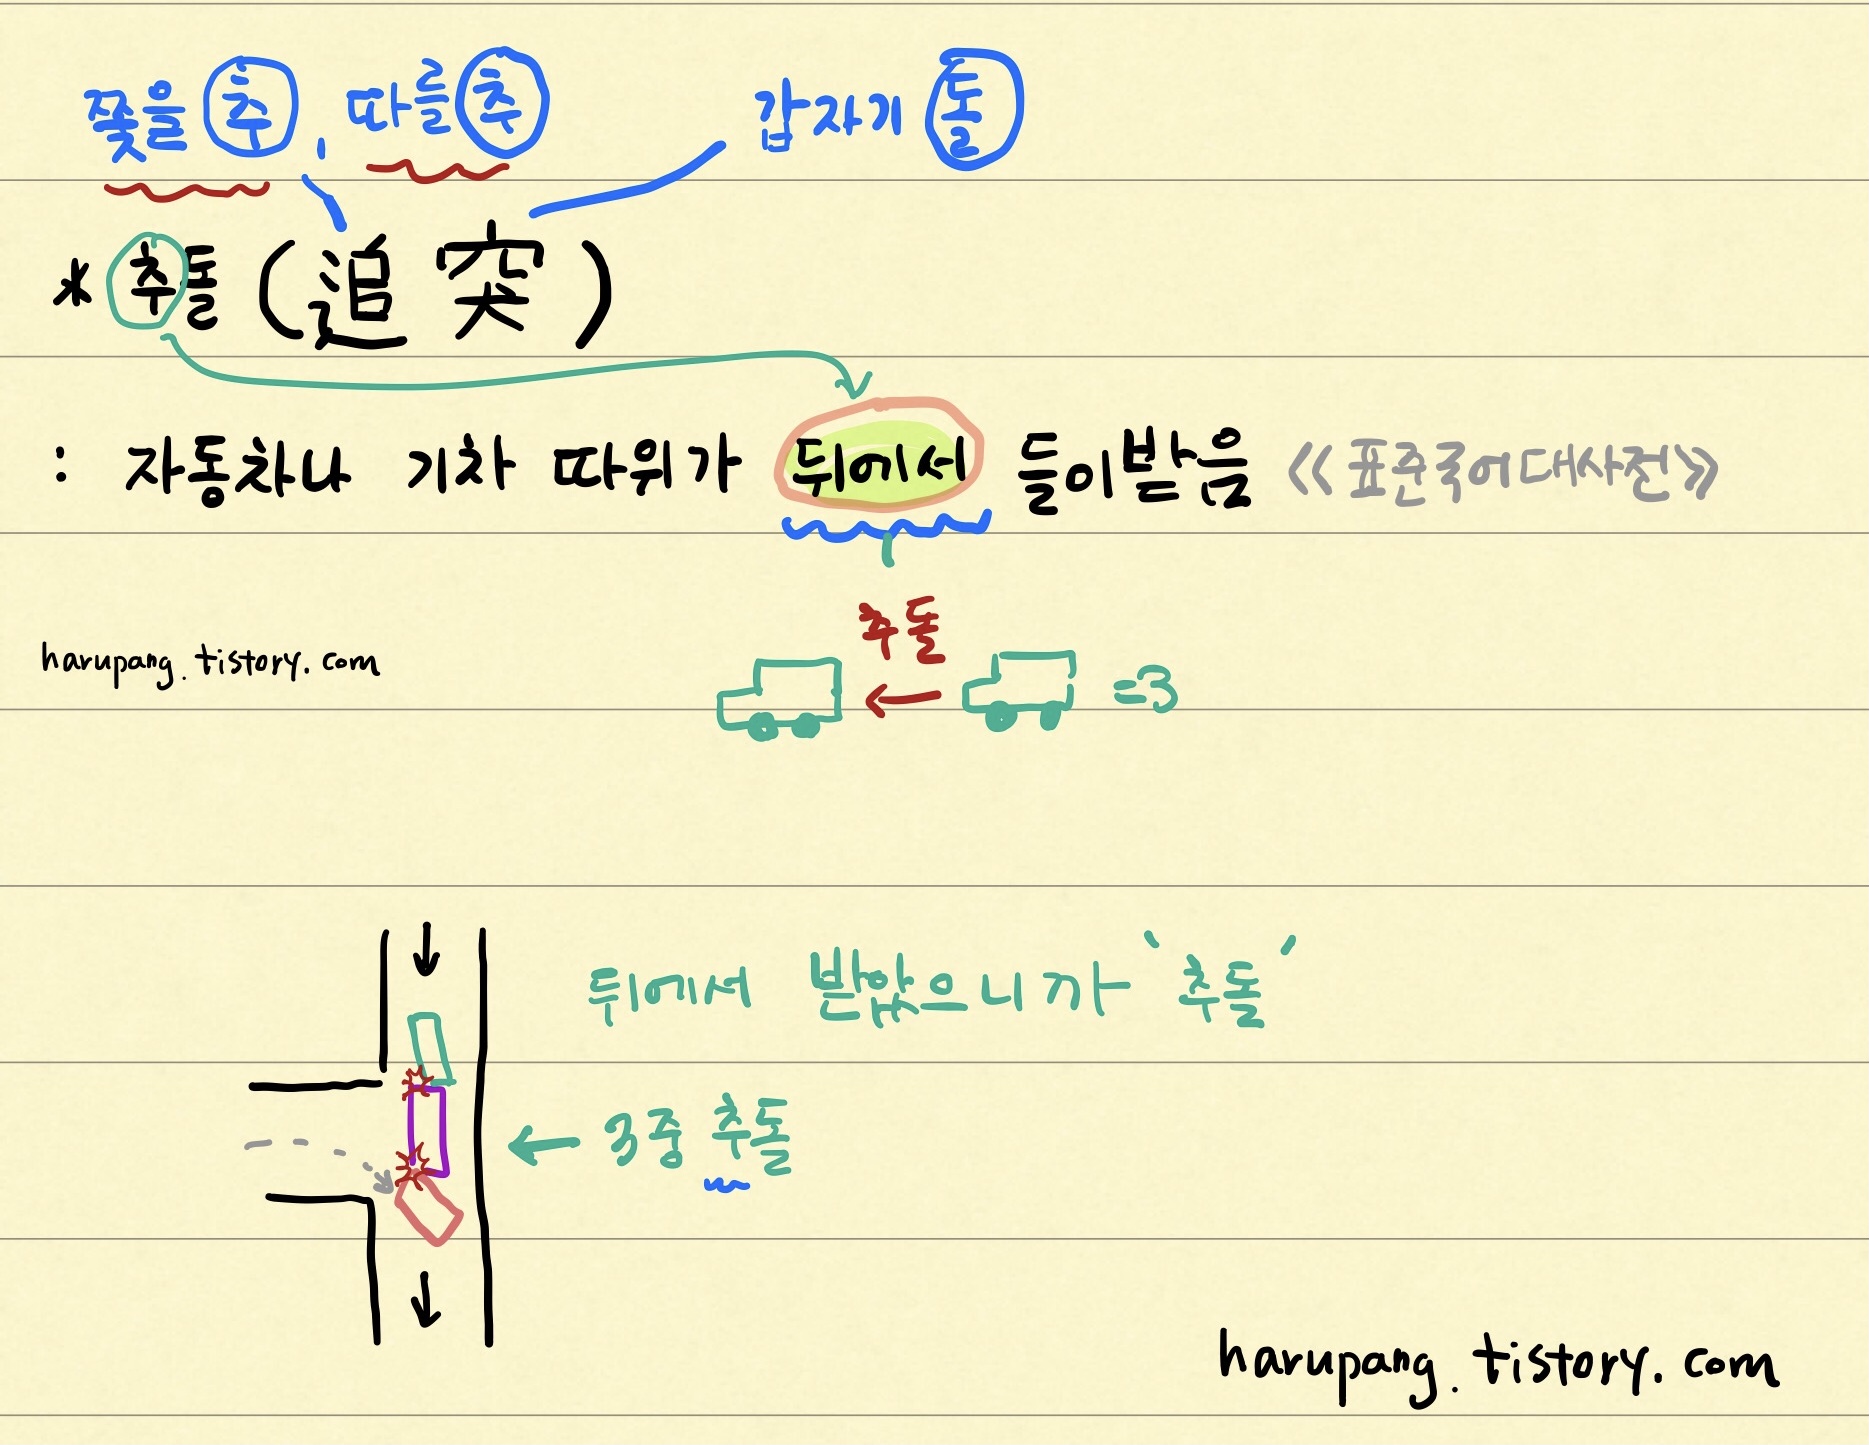 쫓을 추, 따를 추 갑자기 돌
* 추돌(追突)
: 자동차나 기차 따위가 뒤에서 들이받음 《표준국어대사전》
추돌
harupang.tistory.com
=3
뒤에서 받았으니까 '추돌'
← 3중 추돌
harupang.tistory.com